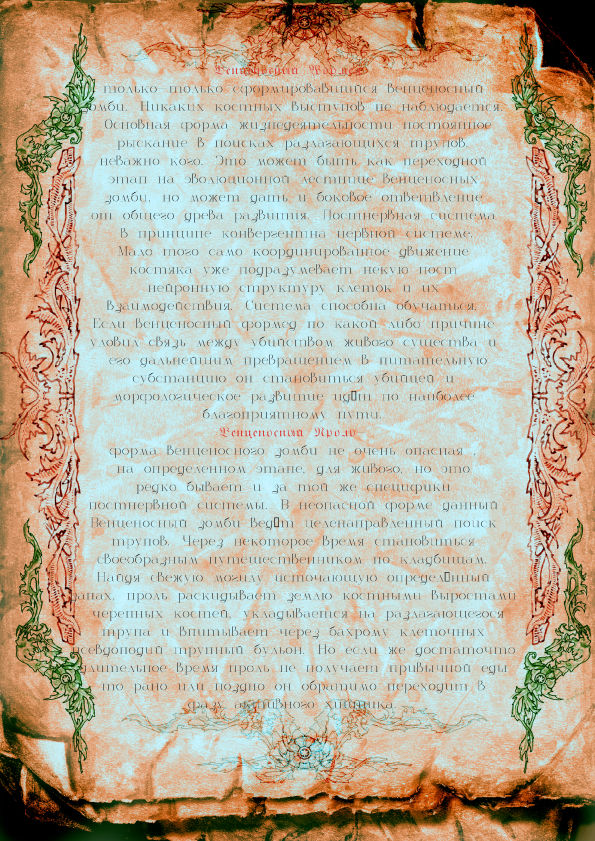 Венценосный
только только сформировавшийся венценосный
зомби. Никаких костных выступов не наблюдается.
Основная форма жизнедеятельности постоянное
рыскание в поисках разлагающихся трупов,
неважно кого. Это может быть как переходной
этап на эволюционной лестнице венценосных
зомби, но может дать и боковое ответвление
от общего древа развития. Постнервная система
в принципе конвергентна нервной системе.
Мало того само координированное движение
костяка уже подразумевает некую пост
нейронную структуру клеток и их
взаимодействия. Система способна обучаться.
Если венценосный формед по какой либо причине
уловил связь между убийством живого существа и
его дальнейшим превращением в питательную
субстанцию он становиться убийцей и
морфологическое развитие ид▯т по наиболее
благоприятному пути.
Венценосный Проль
форма венценосного зомби не очень опасная ,
на определенном этапе, для живого, но это
редко бывает и за той же специфики
постнервной системы. В неопасной форме данный
Венценосный зомби вед▯т целенаправленный поиск
трупов. Через некоторое время становиться
своеобразным путешественником по кладбищам.
Найдя свежую могилу источающую определ▯нный
запах, проль раскидывает землю костными выростами
черепных костей, укладывается на разлагающегося
трупа и впитывает через бахрому клеточных
псевдоподий трупный бульон. Но если же достаточно
длительное время проль не получает привычной еды
то рано или поздно он обратимо переходит в
фазу активного хищника.